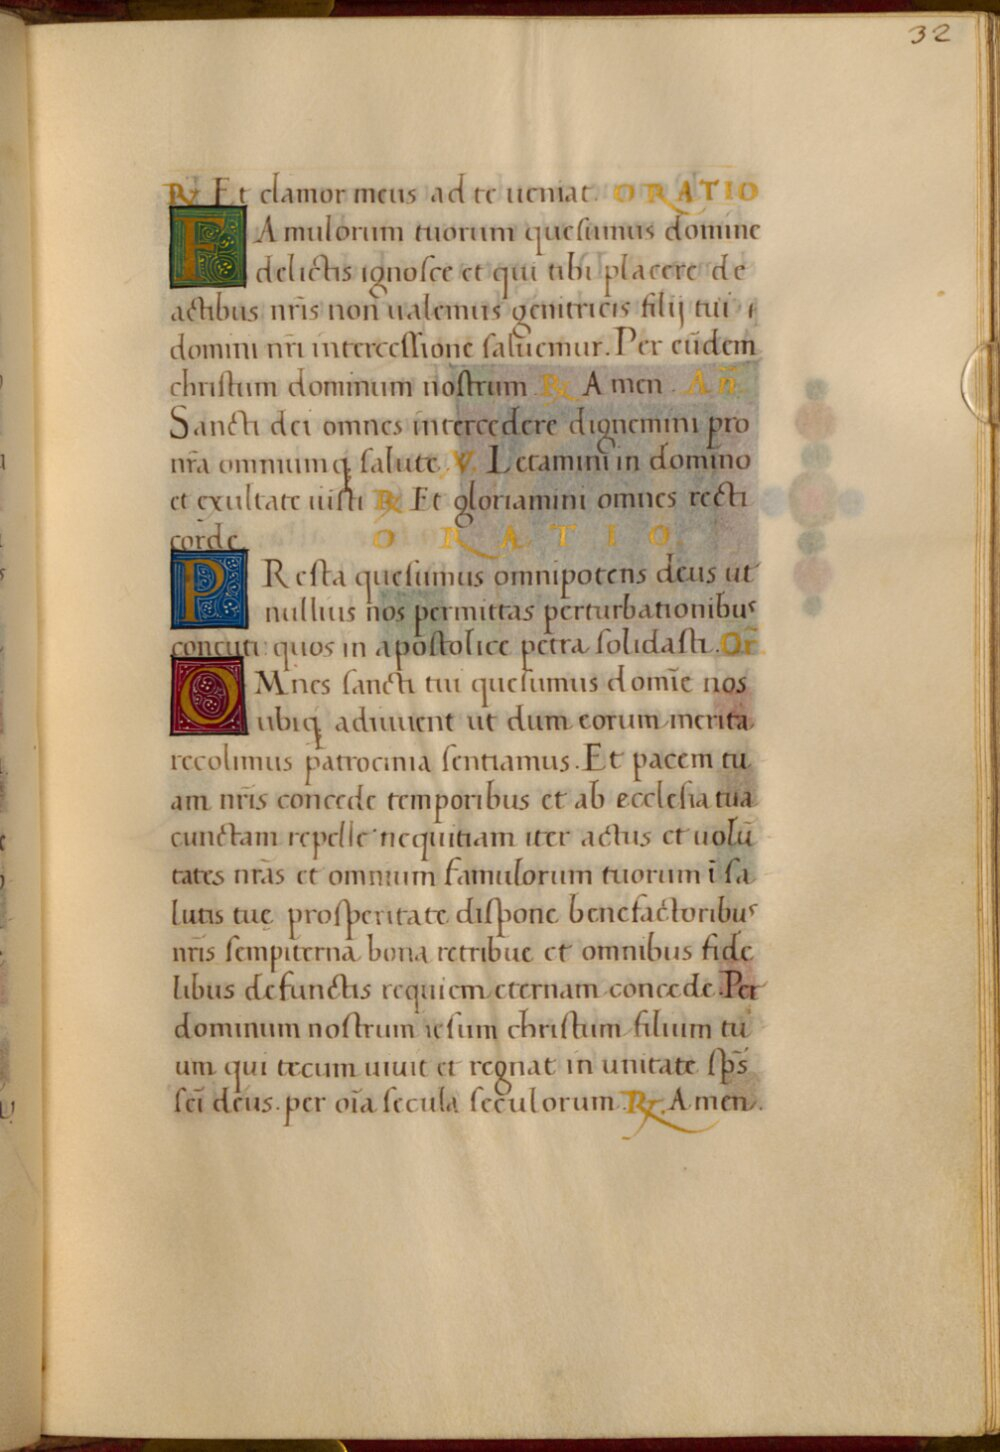 32
R Et clamor meus ad te ueniat. ORATIO
FAmulorum tuorum quesumus domine
delictis ignosce et qui tibi placere de
actibus nr̄is non ualemus genitricis filij tui
domini nr̄i intercessione saluemur. Per eūdem
christum dominum nostrum R Amen. An̄
Sancti dei omnes intercedere dignemini pro
nr̄a omniumq salute V. Letamini in domino
et exultate iusti R Et gloriamini omnes recti
corde. ORATIO.
PResta quesumus omnipotens deus ut
nullius nos permittas perturbationibus
concuti: quos in apostolice petra solidasti. Or̄
OMnes sancti tui quesumus domīe nos
ubiq adiuuent ut dum eorum merita
recolimus patrocinia sentiamus. Et pacem tu
am nr̄is concede temporibus et ab ecclesia tua
cunctam repelle nequitiam iter actus et uolū
tates nr̄as et omnium famulorum tuorum ī sa
lutis tuę prosperitate dispone benefactoribus
nr̄is sempiterna bona retribue et omnibus fide
libus defunctis requiem eternam concede. Per
dominum nostrum iesum christum filium tu
um qui tecum uiuit et regnat in unitate sp̄s
sc̄i deus. per oīa secula seculorum. R. Amen.